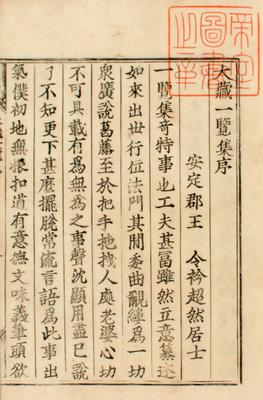 帝室
圖書
之章
大藏一覽集序
安定郡王 令衿超然居士
一覽集奇特事也工夫甚冨雖然立意纂述
如來出世行位法門其間委曲覼縷為一切
衆廣說葛藤至於把手拖拽人處老婆心切
不可具載有為無為之事聲沈顯用盡已說
了不知更下甚麽擺脫常流言語為此事出
氣僕初地無根扣道有意撫文味義筆頭欲